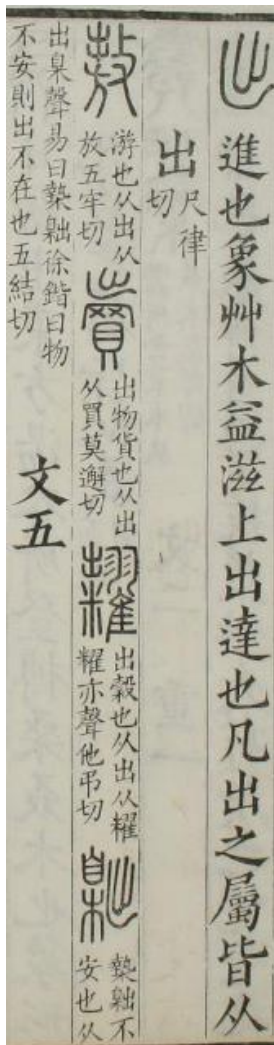 出進也象艸木益滋上出達也凡出之屬皆从
出尺律
切
敖游也从出从
放五牢切
賣出物貨也从出
从買莫邂切
糶出穀也从出从䊮
䊮亦聲他弔切
𡴎槷𡴎不
安也从
出臬聲易曰槷𡴎徐鍇曰物
不安則出不在也五結切
文五